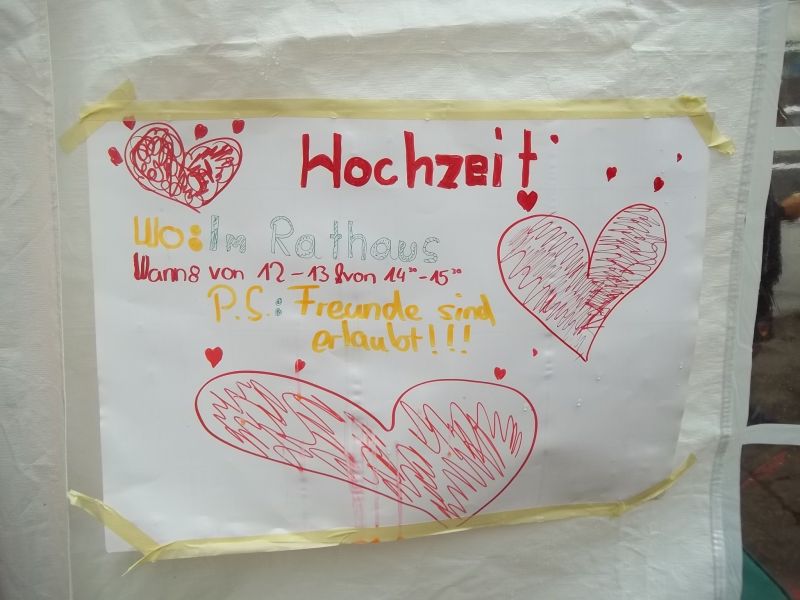 Hochzeit
Wo: Im Rathaus
Wann: von 12-13 & von 14³⁰-15³⁰
P.S.: Freunde sind
erlaubt!!!